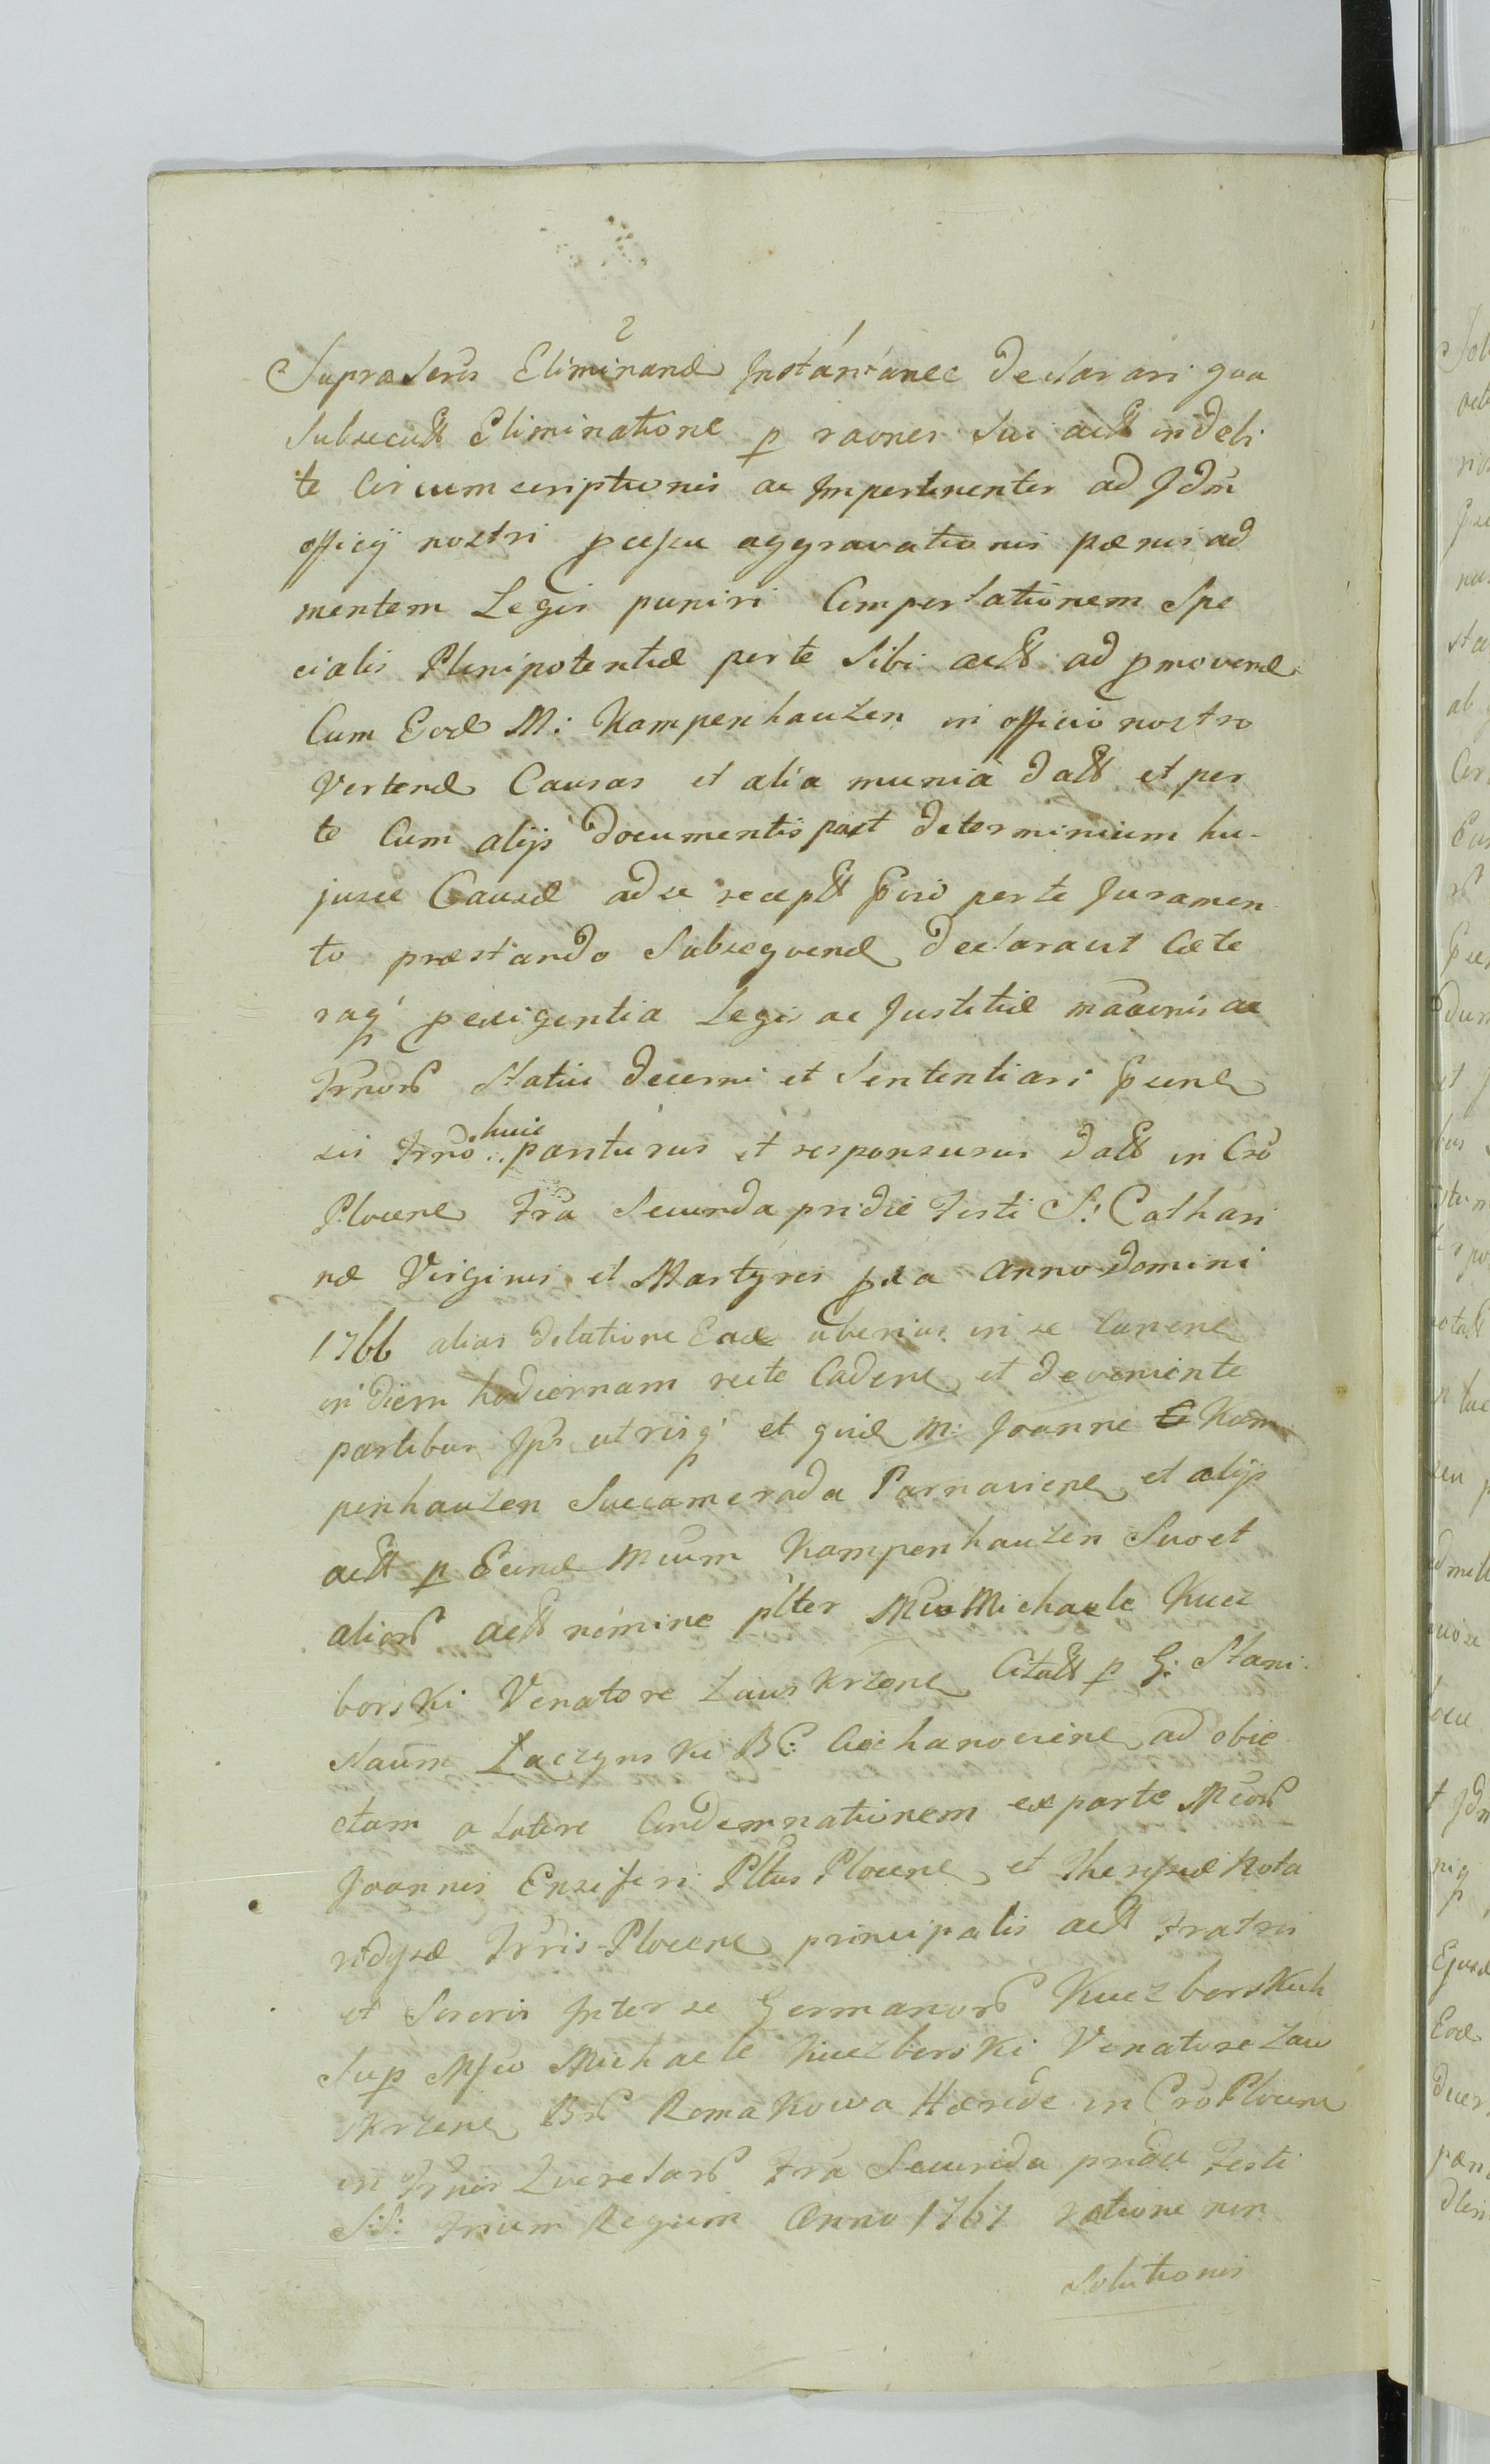 Supraseris Eliminand Instantanee declarari qua
Subsecutt Eliminatione p raones sui actt indebi
te Circumscriptionis ac Impertinenter ad Jdm
officij nostri pcessu aggravationis pœnis ad
mentem Legis puniri Comportationem Spe
cialis Plenipotentiæ per te Sibi actt ad pmovend
Cum Eod M: Kampenhauzen in officio nostro
Vertend Causas et alia munia datt et per
te Cum alijs documentis post determinium hu-
jusce Causæ ad se receptt pvio per te Juramen
to præstando Subsequend declaravit Cæte
raq' p exigentia Legis ac Justitiæ maaonis ac
Trnor Statui decerni et Sententiari psend
sis Trno huic pariturus et responsurus Datt in Cro
Plocens Fra Secunda pridie Festi S: Cathari
næ Virginis et Martyris pxa Anno Domini
1766 alias delatione Ead uberius in se Canend
in diem hodiernam recte Cadend et deveniente
partibus Jps utrisq' et quid M: Joanne C Kam
penhauzen Succamerada Parnaviens et alijs
actt p Eund Mcum Kampenhauzen Suo et
alior actt nomine plter Mco Michaele Kucz
borski Venatore Zawskrzens Citatt p G: Stani
slaum Łączynski B C: Ciechanoviens ad obie
ctam a latere Condemnationem ex parte Mcor
Joannis Ensiferi Pltus Plocens et Theresiæ Nota
ridysæ Trris Plocens principalis actt Fratris
et Sororis Inter se Germanor Kuczborskich
Sup Mfco Michaele Kuczborski Venatore Zaw
skrzens Br Romakowa Hærede in Cro Plocens
in Trnis Querelar Fra Secunda pridie Festi
S:S: Trium Regum Anno 1767 ratione non
Solutionis